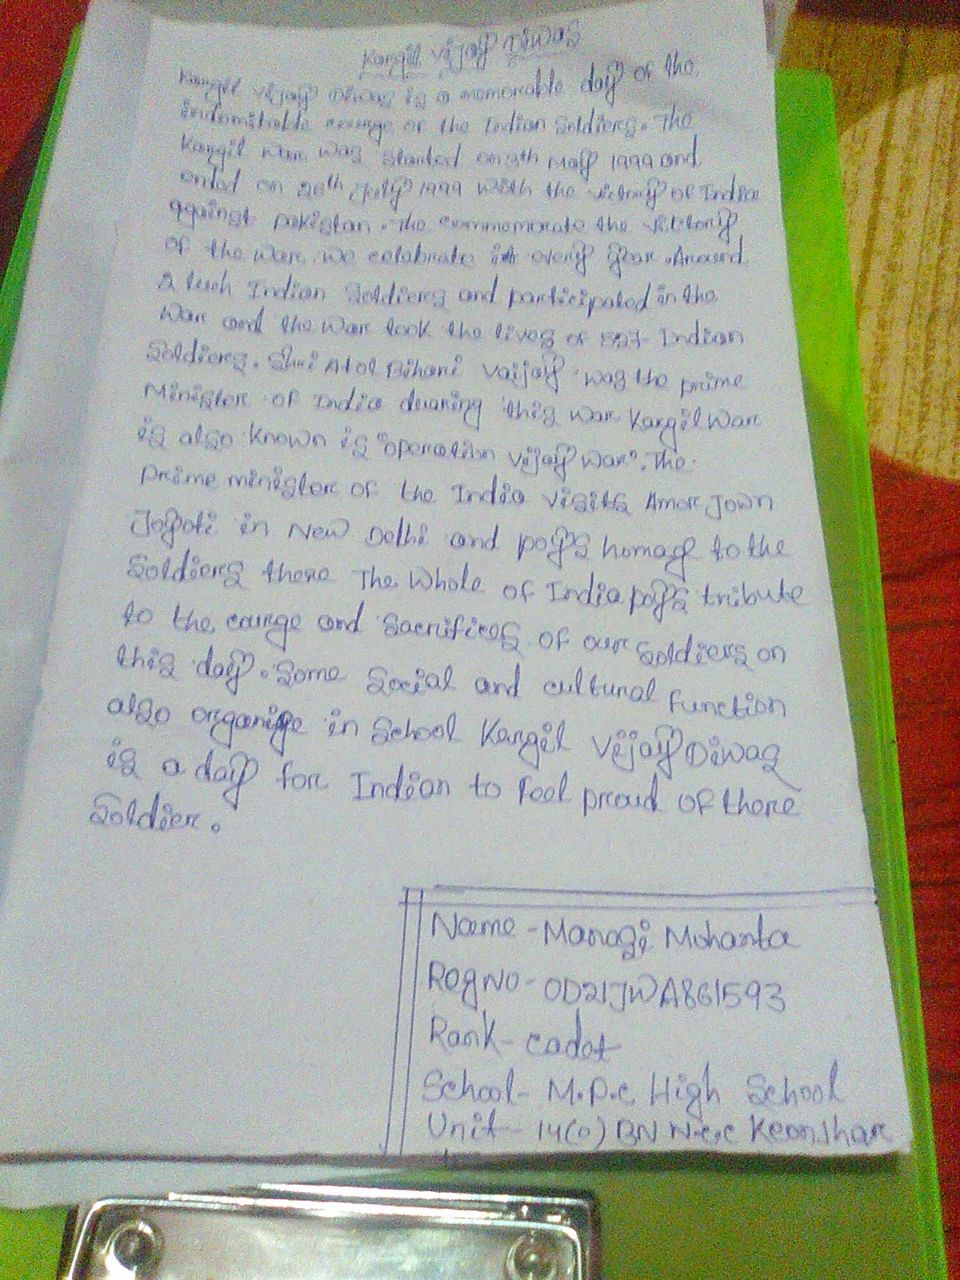 Kargil Vijay Diwas
Kargil Vijay Diwas is a memorable day of the
indomitable courge of the Indian Soldiers. The
Kargil War was started on 5th May 1999 and
ended on 26th July 1999 with the victory of India
against pakistan. The commemorate the victory
of the War, we celebrate it every year. Around
2 lush Indian Soldiers and participated in the
War and the War took the lives of 527 Indian
Soldiers. Shri Atol Bihari Vaijay was the prime
Minister of India duaring this war Kargil War
is also known is "operation vijay War". The
prime minister of the India visits Amar Jown
Jayoti in New Delhi and pays homage to the
Soldiers there The Whole of India pays tribute
to the courge and sacrifices of our soldiers on
this day. Some Social and cultural function
also organige in School Kargil Vijay Diwas
is a day for Indian to feel proud of there
Soldier.
Name - Managi Mohanta
Reg No - OD21JWA861593
Rank - cadet
School - M.P.c High School
Unit - 14(o) BN N.c.c Keonjhar